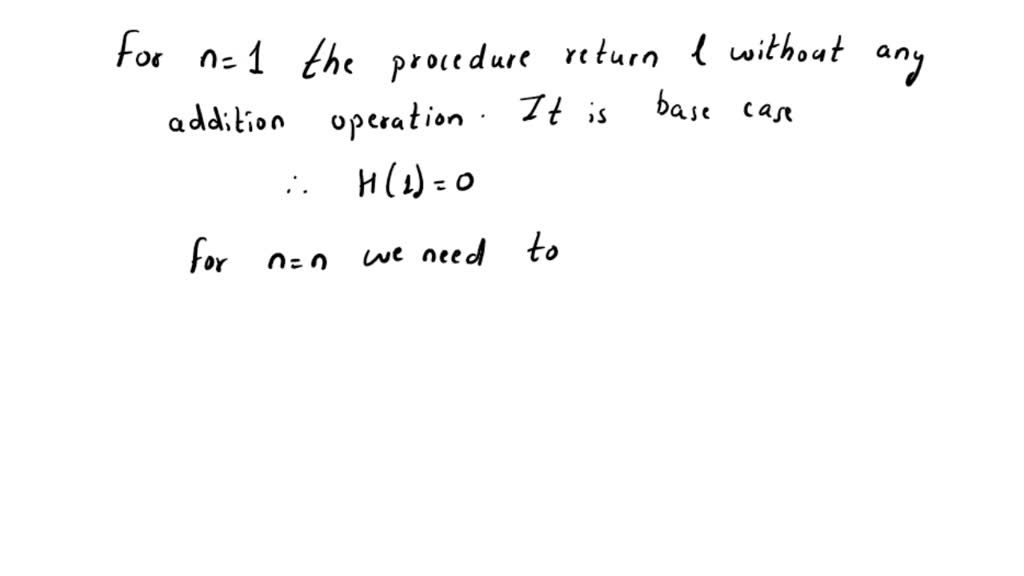 For n=1 the procedure return 1 without any
addition operation. It is base case
∴ H(1)=0
for n=n we need to